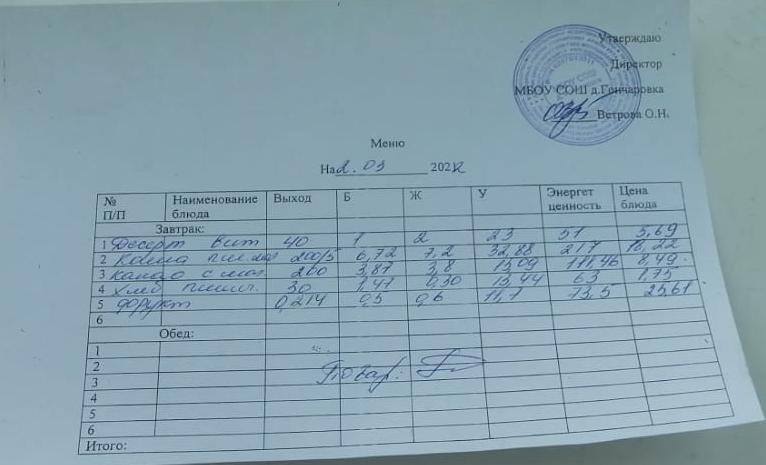 Утверждаю
Директор
МБОУ СОШ д.Гончаровка
Ветрова О.Н.
Меню
На 2.03 2022
№ П/П Наименование блюда Выход Б Ж У Энергет ценность Цена блюда
Завтрак:
1 Десерт вит 40 1 2 23 51 5,69
2 Каша пш. мол 200/5 6,72 7,2 32,88 217 18,22
3 Какао с мол. 200 3,87 3,8 15,09 111,46 8,49
4 Хлеб пшен. 30 1,47 0,30 13,44 63 1,75
5 Фрукт 0,214 0,5 0,6 11,7 73,5 25,61
6
Обед:
1
2
3
Повар:
4
5
6
Итого: